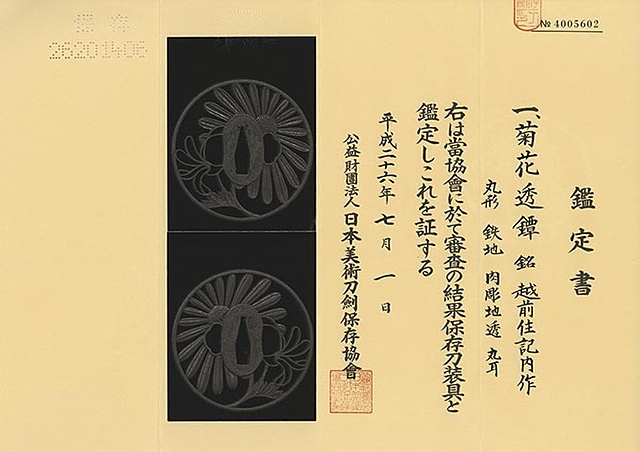 鑑定書
№ 4005602
一、菊花透鐔 銘 越前住記内作
丸形 鉄地 肉彫地透 丸耳
右は當協會に於て審査の結果保存刀装具と
鑑定しこれを証する
平成二十六年 七月 一日
公益財團法人 日本美術刀劍保存協會